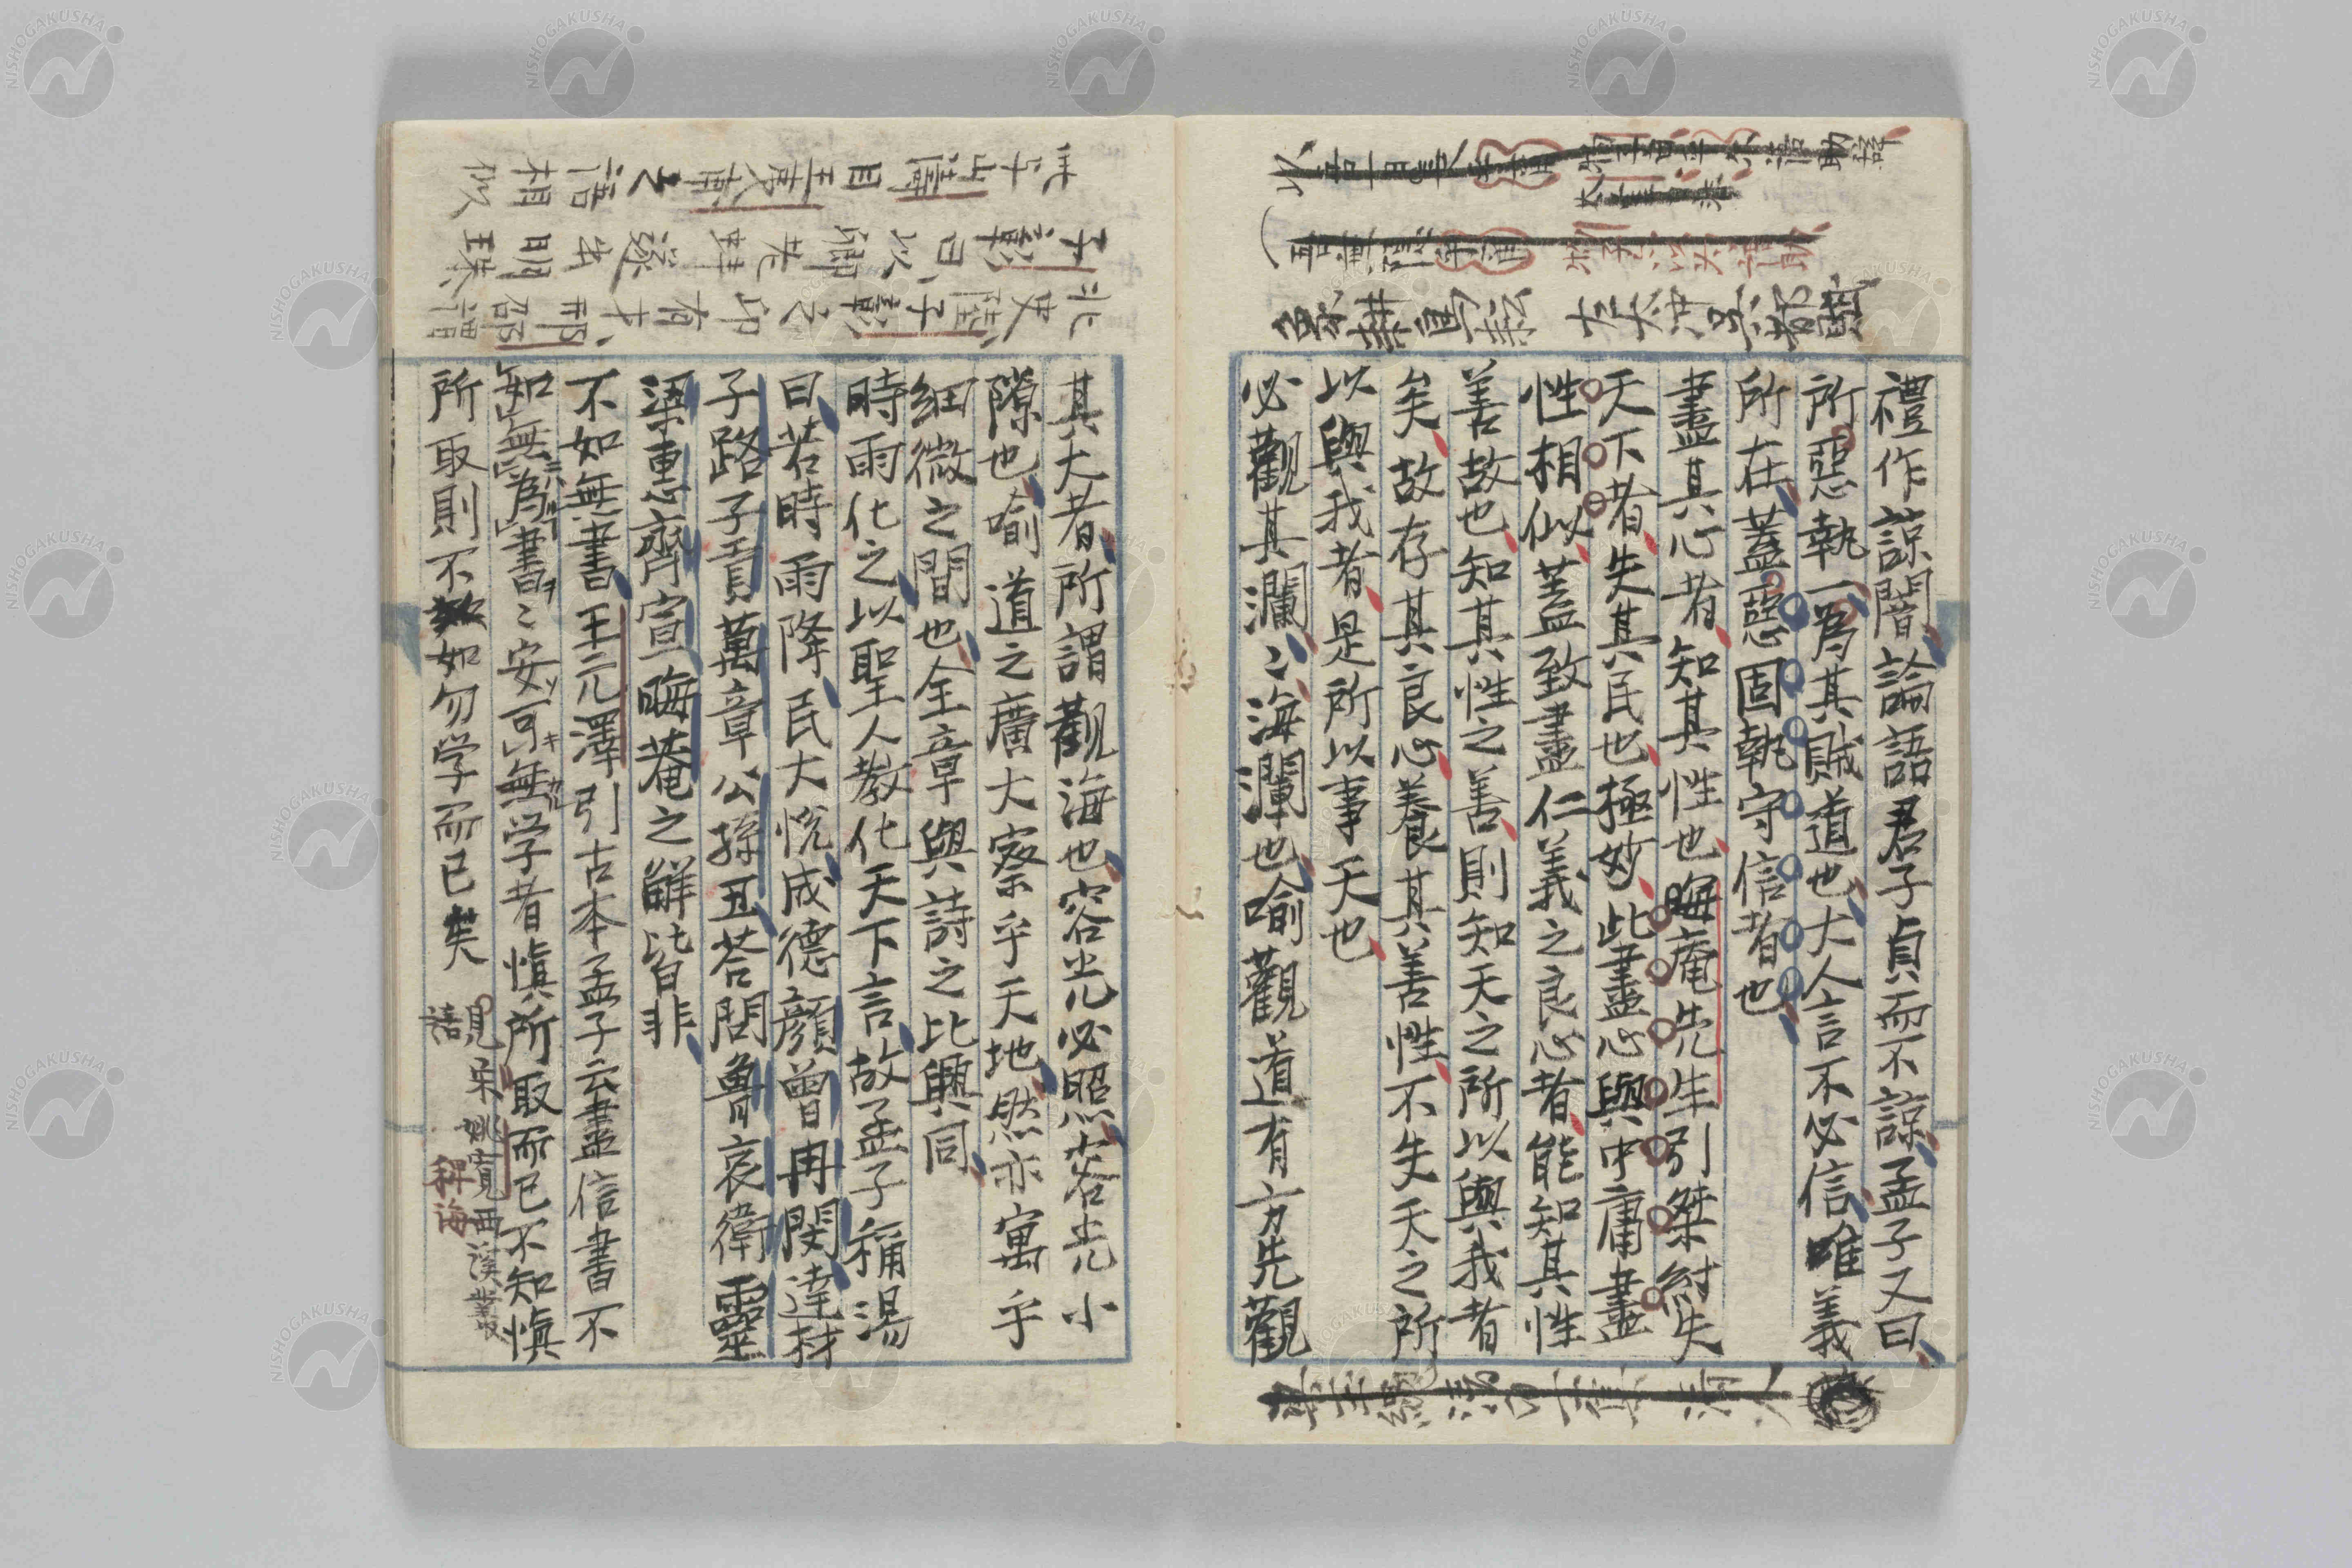 禮作諒闇論語君子貞而不諒孟子又曰
所惡執一為其賊道也大人言不必信唯義
所在蓋惡固執守信者也
盡其心者知其性也晦庵先生引桀紂失
天下者失其民也極妙此盡心與中庸盡
性相似蓋致盡仁義之良心者能知其性
善故也知其性之善則知天之所以與我者
矣故存其良心養其善性不失天之所
以與我者是所以事天也
必觀其瀾〻海瀾也喻觀道有方先觀
其大者所謂觀海也容光必照容光小
隙也喻道之廣大察乎天地然亦寓乎
細微之間也全章與詩之比興同
時雨化之以聖人教化天下言故孟子稱湯
曰若時雨降民大悅成德顏曾冉閔達材
子路子貢萬章公孫丑荅問魯哀衛靈
梁惠齊宣晦菴之解皆非
不如無書王元澤引古本孟子云盡信書不
如無為書〻安可無学者慎所取而已不知慎
所取則不如勿学而已矣
見宋姚寬西溪叢
語
稗海
北史陸子彰之卬有才邢邵謂
子彰曰以卿老蚌遂出明珠
与山濤目王夷甫之語相似
NISHOGAKUSHA